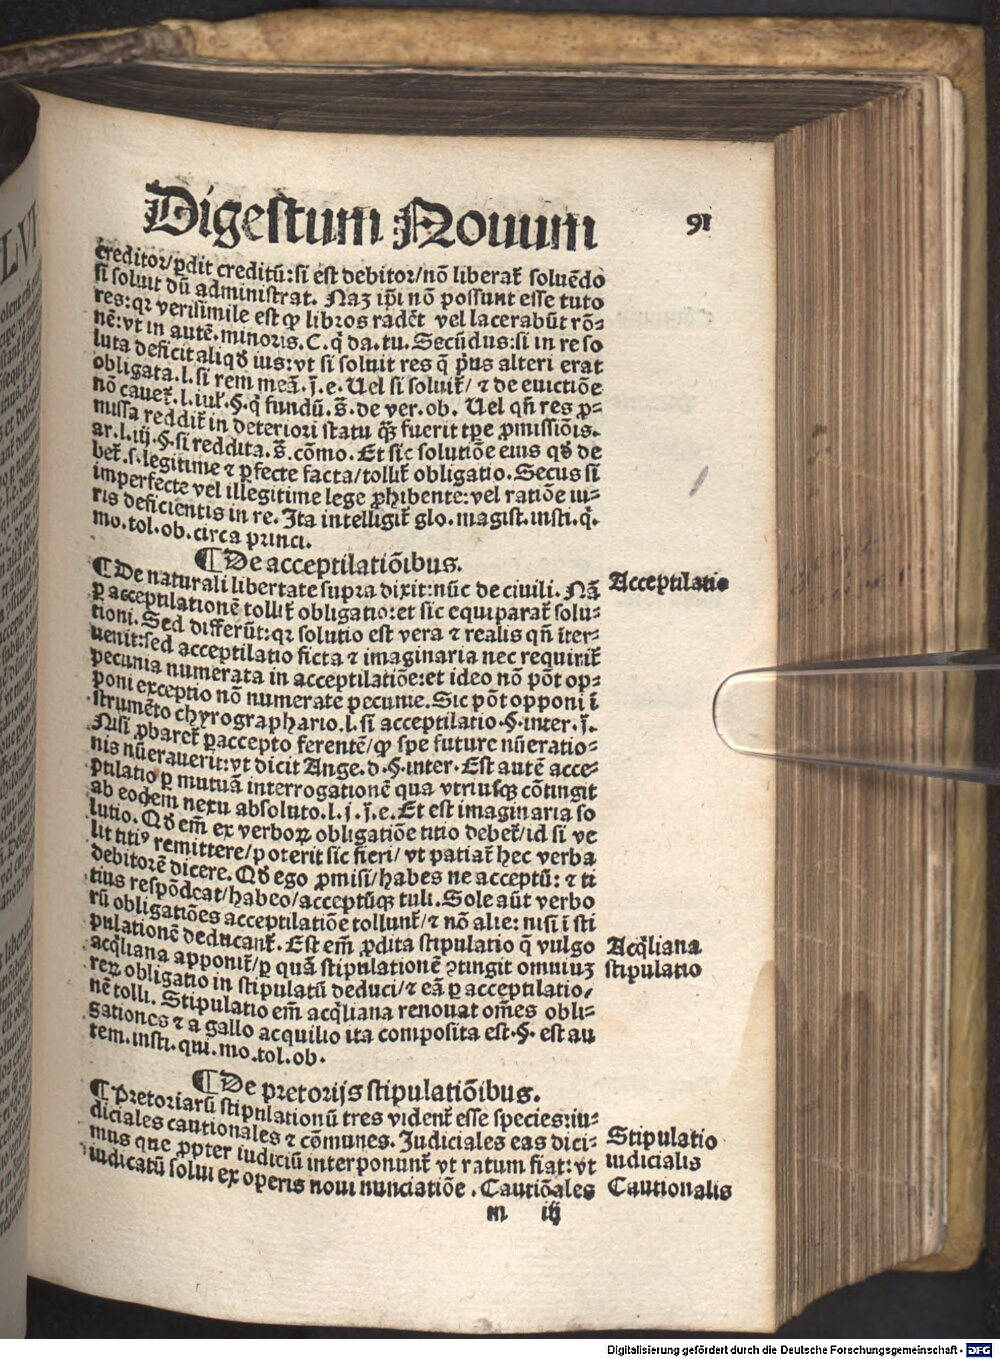 Digestum Nouum 91
creditor/ ꝑdit creditū: si est debitor/ nō liberat̃ soluēdo
si soluit dū administrat. Naꝫ ip̄i nō possunt esse tuto
res: qꝛ verisimile est ꝙ libros radēt vel lacerabūt rō⸗
nē: vt in autē. minoris. C. q̄ da. tu. Secūdus: si in re so
luta deficit aliqḋ ius: vt si soluit res q̄ pͥus alteri erat
obligata. l. si rem meā. j̄. e. Uel si soluit̃/ ⁊ de euictiōe
nō cauet̃. l. iul̃. §. q̄ fundū. s̄. de ver. ob. Uel qn̄ res ꝓ⸗
missa reddit̃ in deteriori statu q̄ȝ fuerit tꝑe ꝓmissiōis.
ar. l. iij. §. si reddita. s̄. cōmo. Et sic solutiōe eius qḋ de
bet̃. s. legitime ⁊ ꝑfecte facta/ tollit̃ obligatio. Secus si
imperfecte vel illegitime lege ꝓhibente: vel ratiōe iu⸗
ris deficientis in re. Ita intelligit̃ glo. magist. insti. q̄.
mo. tol. ob. circa princi.
¶ De acceptilatiōibus.
¶ De naturali libertate supra dixit: nūc de ciuili. Nā
ꝑ acceptilationē tollit̃ obligatio: et sic equiparat̃ solu⸗
tioni. Sed differūt: qꝛ solutio est vera ⁊ realis qn̄ iter⸗
uenit: sed acceptilatio ficta ⁊ imaginaria nec requirit̃
pecunia numerata in acceptilatiōe: et ideo nō pōt op⸗
poni exceptio nō numerate pecunie. Sic pōt opponi ī
strumēto chyrographario. l. si acceptilatio. §. inter. j̄.
Nisi ꝓbaret̃ ꝑ accepto ferentē/ ꝙ spe future nūeratio⸗
nis nūerauerit: vt dicit Ange. d. §. inter. Est autē acce⸗
ptilatio ꝑ mutuā interrogationē qua vtriusqꝫ cōtingit
ab eodem nexu absoluto. l. j. j̄. e. Et est imaginaria so
lutio. Qḋ em̄ ex verboꝝ obligatiōe titio debet̃/ id si ve
lit titiꝰ remittere/ poterit sic fieri/ vt patiat̃ hec verba
debitorē dicere. Qḋ ego ꝓmisi/ habes ne acceptū: ⁊ ti
tius respōdeat/ habeo/ acceptūqꝫ tuli. Sole aūt verbo
rū obligatiōes acceptilatiōe tollunt̃/ ⁊ nō alie: nisi ī sti
pulationē deducant̃. Est em̄ ꝓdita stipulatio q̄ vulgo
acq̄liana apponit̃/ ꝑ quā stipulationē ꝯtingit omniuꝫ
reꝝ obligatio in stipulatū deduci/ ⁊ eā ꝑ acceptilatio/
nē tolli. Stipulatio em̄ acq̄liana renouat om̄es obli⸗
gationes ⁊ a gallo acquilio ita composita est. §. est au
tem. insti. qui. mo. tol. ob.
¶ De pretorijs stipulatiōibus.
¶ Pretoriarū stipulationū tres vident̃ esse species: iu⸗
diciales cautionales ⁊ cōmunes. Judiciales eas dici⸗
mus que ꝓpter iudiciū interponunt̃ vt ratum fiat: vt
iudicatū solui ex operis noui nunciatiōe. Cautiōales
m iij
Acceptilatio
Acq̄liana
stipulatio
Stipulatio
iudicialis
Cautionalis
Digitalisierung gefördert durch die Deutsche Forschungsgemeinschaft - DFG